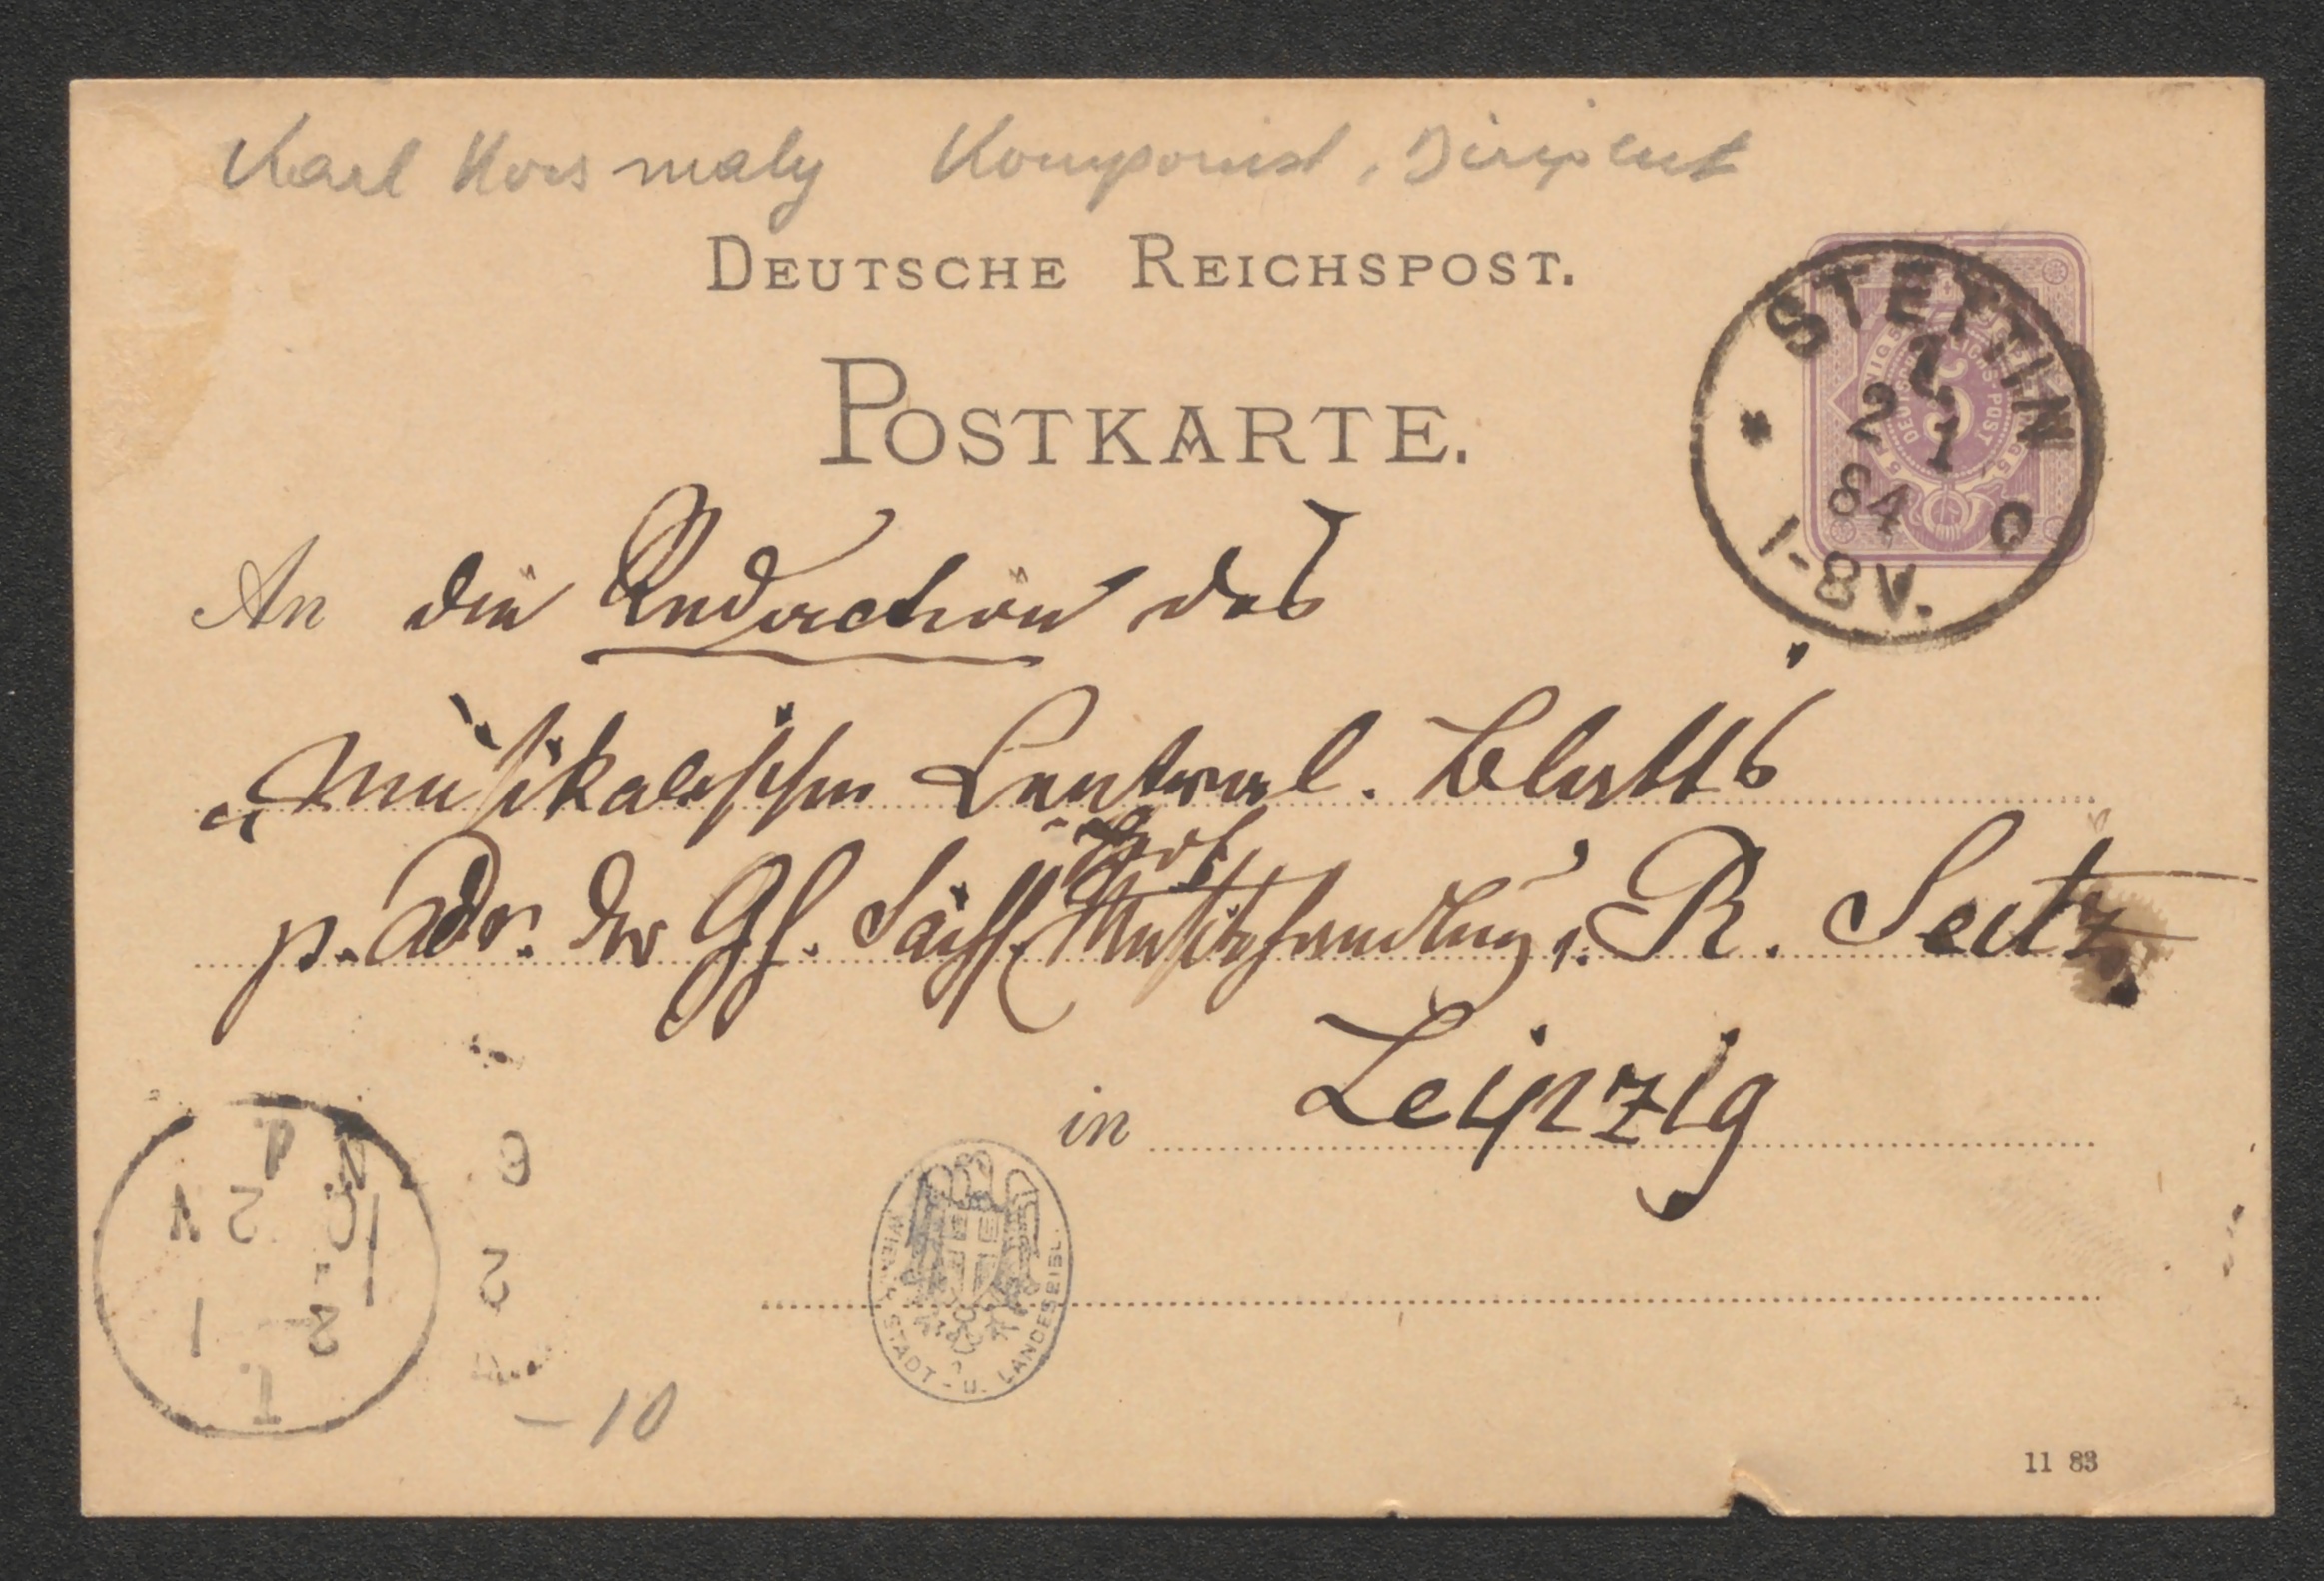 Karl Kossmaly Komponist, Dirigent
DEUTSCHE REICHSPOST.
POSTKARTE.
STETTIN
1
2 1
84
1-8 V.
An die Redaction des
„Musikalischen Central. Blatts"
Hof
p. Adr. der Gh. Sächs. Musikhandlung, R. Seitz
in Leipzig
WIENER STADT - U. LANDESBIBL.
- 10
11 83